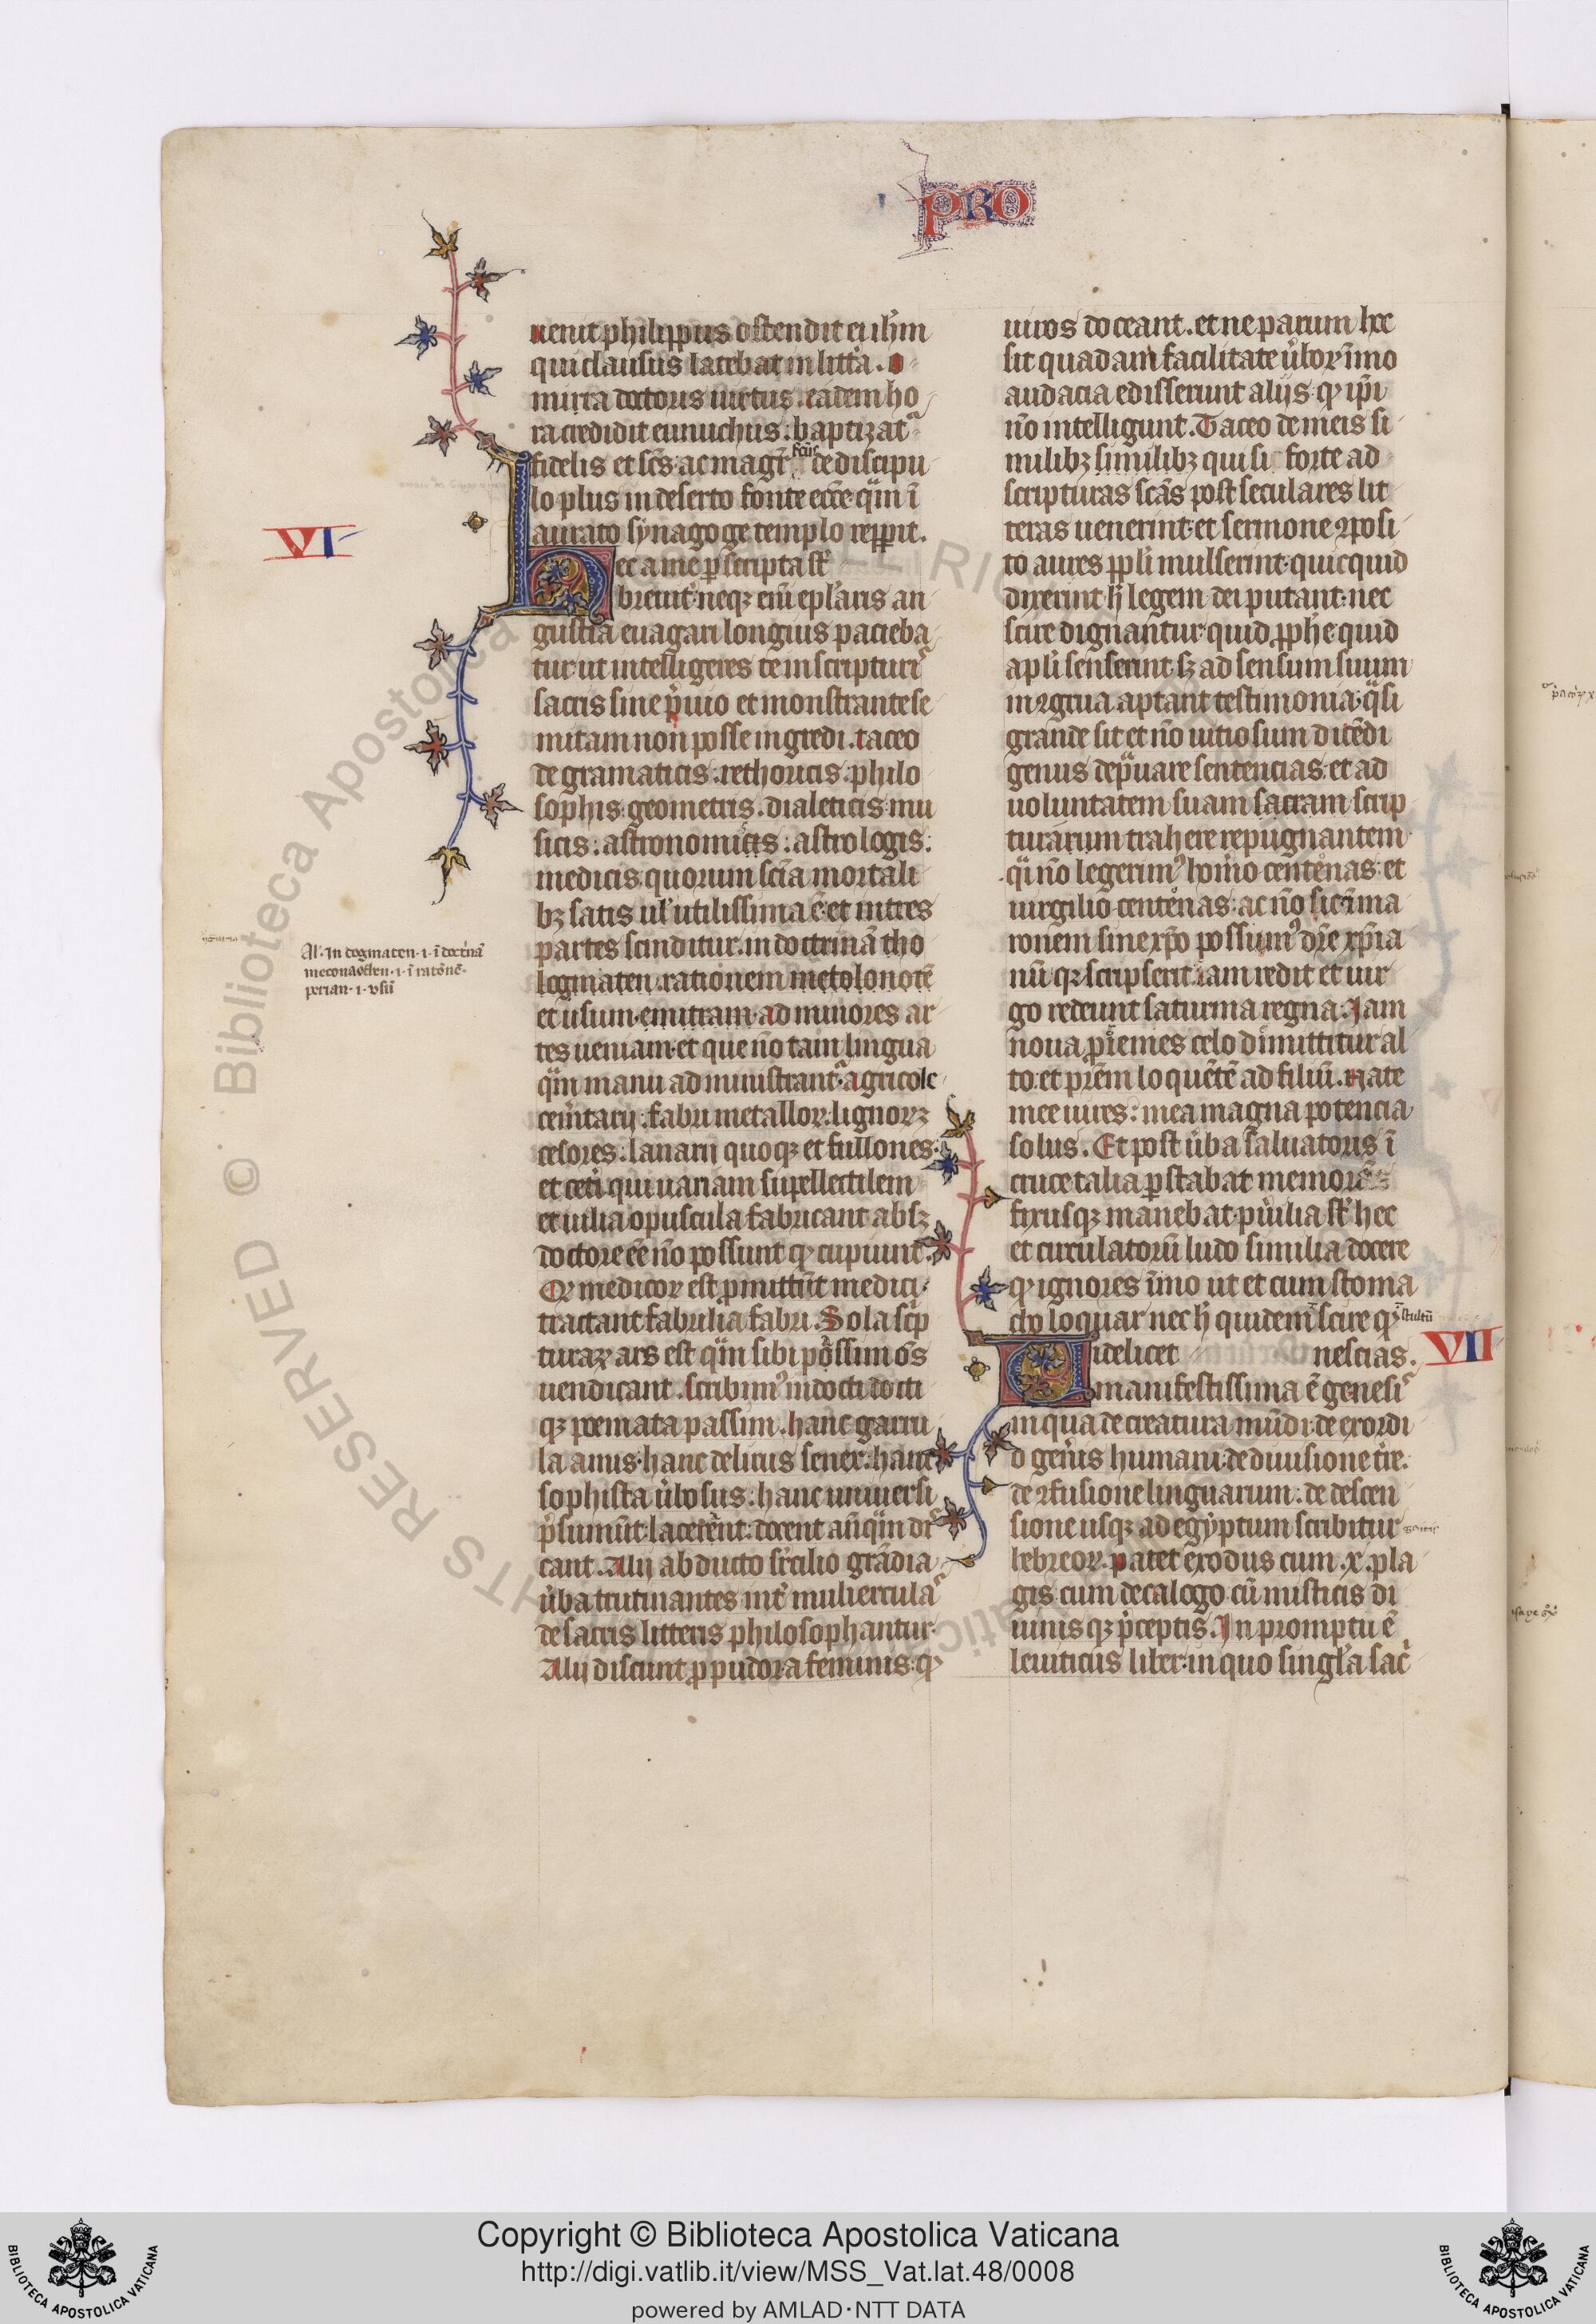 PRO
uenit philippus ostendit ei ih̄m
qui clausus latebat in litt̄a. o
mira doctoris uirtus. eadem ho
ra credidit eunuchus: baptizat᷑
fidelis et sc̄s ac magr̄ fctūs de discipu
lo plus in deserto fonte eccē qͣm ī
aurato synagoge templo repp̄it.
VI
Hec a me p̄scripta st̄
breuit̄: neqꝫ eni᷑ epl̄aris an
gustia euagari longius patieba
tur: ut intelligeres te in scripturiˢ
sacris sine p̄uio et monstrante se
mitam non posse ingredi. taceo
de gramaticis: rethoricis. philo
sophis: geometris. dialeticis: mu
sicis: astronomicis: astrologis:
medicis: quorum sciā mortali
bꝫ satis ul̄ utilissima ē: et in tres
partes scinditur. in doctrinā tho
logmaten. rationem metolonotē
et usum emitram. ad minores ar
tes ueniam: et que nō tam lingua
qͣm manu administrant᷑. agricole
cem̄tarij: fabri metalloꝝ: lignorꝫ
cesores: lanarij quoqꝫ et fullones:
et cet̄i qui uariam supellectilem
et uilia opuscula fabricant absqꝫ
doctore eē nō possunt qꝫ cupiunt.
Al'. In dogmaten. i. ī doctrinā
meconadsten. i. ī ratōnē.
perian. i. vsū
Qꝫ medicoꝝ est promittūt medici:
tractant fabrilia fabri. Sola sc̄p
turaꝝ ars est qͣm sibi possim om̄s
uendicant. scribimꝰ indocti docti
qꝫ poemata passim. hanc garru
la anus: hanc delirus senex: hanc
sophista u̇bosus: hanc uniuersi
p̄sumūt: lacerēnt: docent an̄qͣm di᷑
cant. Alij adducto sr̄cilio grādia
u̇ba trutinantes int̄ mulierculaˢ
de sacris litteris philosophantur.
Alij discunt p̄ pudor a feminis: qꝫ
uiros doceant. et ne parum hec
sit quadam facilitate u̇boꝝ īmo
audacia edisserunt alijs. qꝫ ip̄i
nō intelligunt. Taceo de meis si
milibꝫ similibꝫ qui si forte ad
scripturas scās post seculares lit
teras uenerint: et sermone ꝯposi
to aures pp̄li mulserint: quicquid
dixerint h̄ legem dei putant: nec
scire dignantur: quid pphē quid
apl̄i senserint: sꝫ ad sensum suum
inꝯgrua aptant testimonia: qͣsi
grande sit et nō uitiosum dicēdi
genus dep̄uare sentencias: et ad
uoluntatem suam sacram scrip
turarum trahere repugnantem
qͣi nō legerimꝰ homō centenas: et
uirgilio centenas: ac nō sic ī ma
ronem sine xp̄o possumꝰ dr̄e xp̄ia
nū: qꝫ scripserit: iam redit et uir
go redeunt saturnia regna. Iam
noua p̄ienies celo dimittitur al
to: et pr̄em loquētē ad filiū. nate
mee uires: mea magna potencia
solus. Et post u̇ba saluatoris ī
cruce talia p̄stabat memorās
fixusqꝫ manebat: pu̇ilia st̄ hec
et circulatorū ludo similia docere
qꝫ ignores īmo ut et cum stoma
cho loquar nec h̄ quidem scire qꝫ stultū
nescias. VII
Uidelicet
manifestissima ē genesiˢ
in qua de creatura mūdi: de exordi
o gen̄is humani: de diuisione tr̄e.
de ꝯfusione linguarum: de descen
sione usqꝫ ad egyptum scribitur gentis
hebreoꝝ. patet exodus cum .x. pla
gis cum decalogo cū misticis di
uinisqꝫ p̄ceptis. In promptu ē
leuiticus liber. in quo singl̄a sac᷑
Copyright © Biblioteca Apostolica Vaticana
http://digi.vatlib.it/view/MSS_Vat.lat.48/0008
powered by AMLAD·NTT DATA
BIBLIOTECA APOSTOLICA VATICANA
BIBLIOTECA APOSTOLICA VATICANA